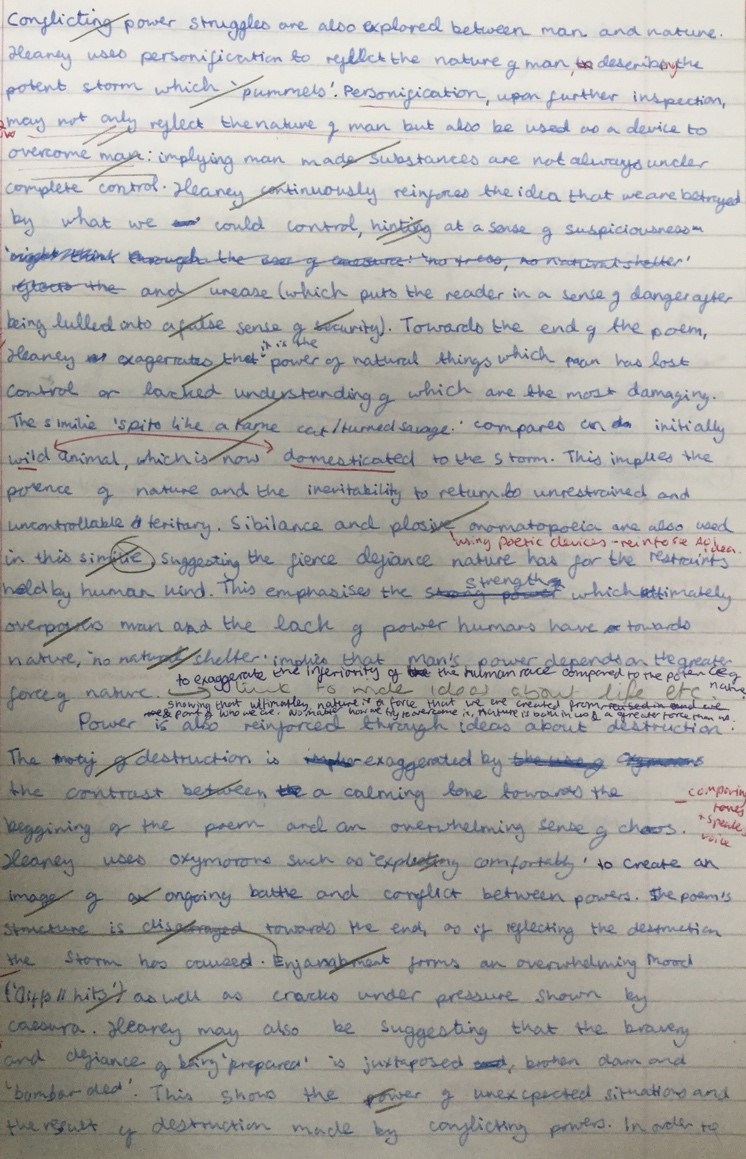 Conflicting power struggles are also explored between man and nature.
Heaney uses personification to reflect the nature of man, to describing the
potent storm which 'pummels'. Personification, upon further inspection,
may not only reflect the nature of man but also be used as a device to
overcome man: implying man made substances are not always under
complete control. Heaney continuously reinforces the idea that we are betrayed
by what we could control, hinting at a sense of suspiciousness
through the use of caesura: 'no trees, no natural shelter'
reflects the and unease (which puts the reader in a sense of danger after
being lulled into a false sense of security). Towards the end of the poem,
it is the
Heaney exagerrates that power of natural things which man has lost
control or lacked understanding of which are the most damaging.
The similie 'spits like a tame cat/turned savage.' compares an initially
wild animal, which is now domesticated to the storm. This implies the
potence of nature and the inevitability to return to unrestrained and
uncontrollable teritary. Sibilance and plosive onomatopoeia are also used
using poetic devices - reinforce idea.
in this similie suggesting the fierce defiance nature has for the restraints
strength
held by human kind. This emphasises the strong power which ultimately
overpowers man and the lack of power humans have towards
nature, 'no natural shelter' implies that man's power depends on the greater
to exaggerate the inferiority of the human race compared to the potence of nature
force of nature. link to wide ideas about life etc
showing that ultimately, nature is a force that we are created from and we
part of who we are. No matter how we try to overcome it, nature is both in us & a greater force than us.
Power is also reinforced through ideas about destruction.
The of destruction is exaggerated by the use of oxymorons
the contrast between a calming tone towards the
comparing
tones
+ speaker
voice
beggining of the poem and an overwhelming sense of chaos.
Heaney uses oxymorons such as 'exploding comfortably' to create an
image of an ongoing battle and conflict between powers. The poem's
structure is towards the end, as if reflecting the destruction
the storm has caused. Enjambment forms an overwhelming mood
('cliffs // hits') as well as cracks under pressure shown by
caesura. Heaney may also be suggesting that the bravery
and defiance of being 'prepared' is juxtaposed broken dam and
'bombarded'. This shows the power of unexcpected situations and
the result of destruction made by conflicting powers. In order to